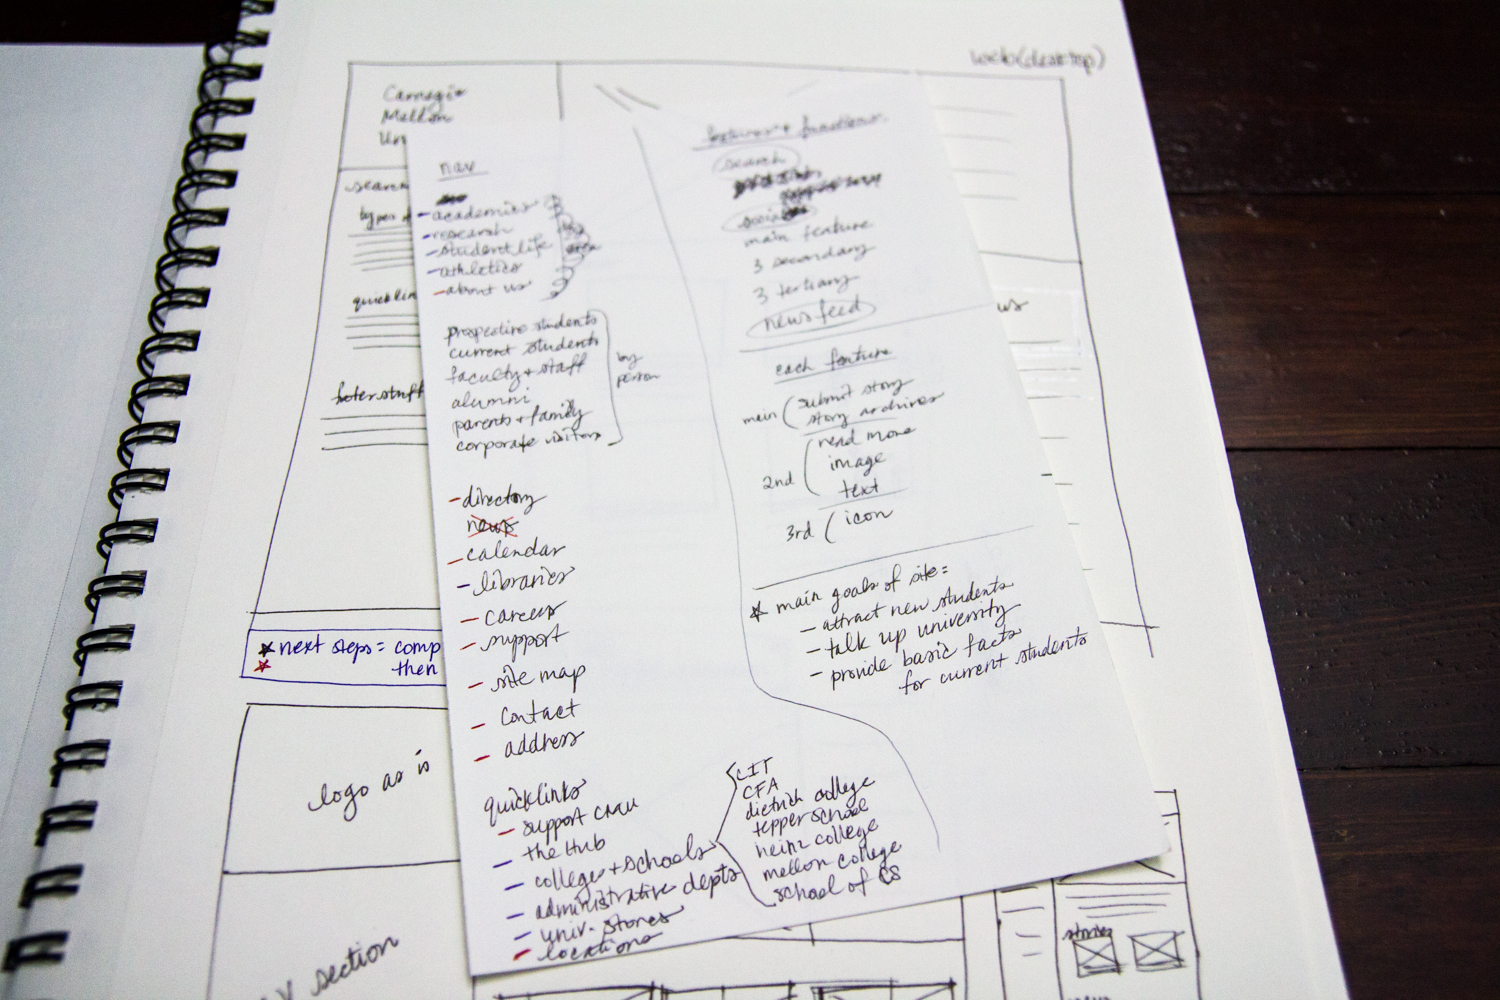 web(desktop)
Carnegie
Mellon
Un
search
types
quicklin
footer stuff
us
★ next steps = comp
★ then
logo as is
section
stories
nav
- academics
- research
- student life
- athletics
- about us
prospective students
current students
faculty + staff
alumni
parents + family
corporate visitors
by
person
- directory
news
- calendar
- libraries
- careers
- support
- site map
- contact
- address
quicklinks
- support CMU
- the Hub
- colleges + schools
- administrative depts
- univ. stores
- locations
CIT
CFA
dietrich college
tepper school
heinz college
mellon college
school of CS
features + functions
search
social
main feature
3 secondary
3 tertiary
news feed
each feature
main ( submit story
story archives
2nd ( read more
image
text
3rd ( icon
★ main goals of site =
- attract new students
- talk up university
- provide basic facts
for current students